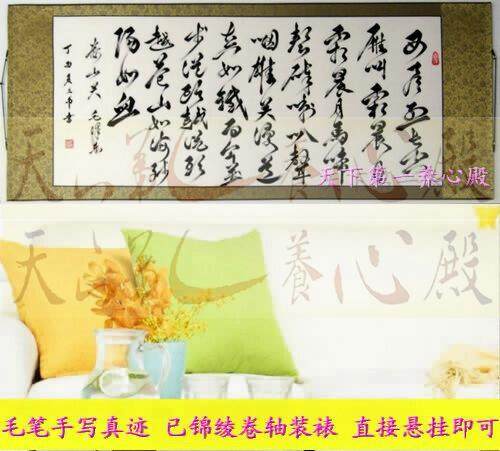 西风烈长空
雁叫霜晨月
霜晨月马蹄
声碎喇叭声
咽雄关漫道
真如铁而今迈
步从头越从头
越苍山如海残
阳如血
娄山关 毛泽东
天下第一养心殿
養心殿
毛笔手写真迹 已锦绫卷轴装裱 直接悬挂即可